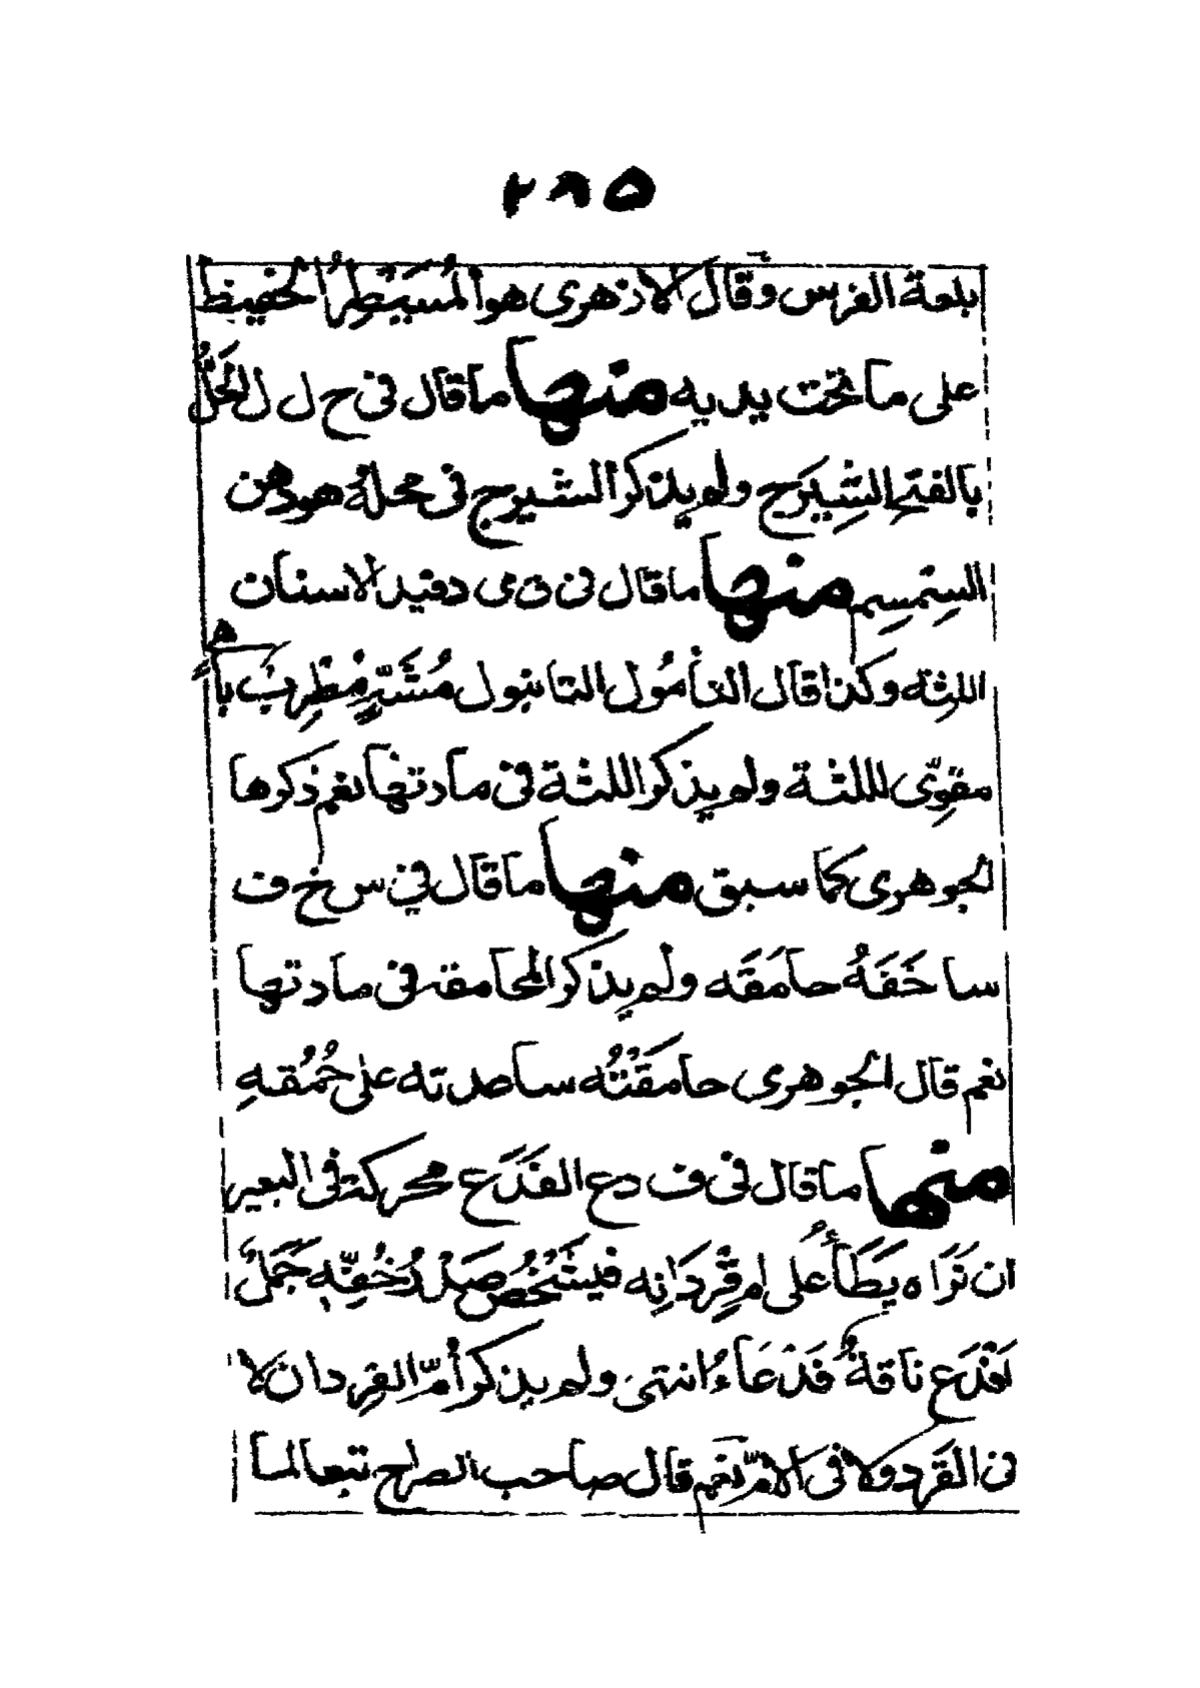 ٢٨٥
بلعة الفرس وقال الازهرى هو المُسَيْطِرُ الحفيظ
على ما تحت يديه منها ما قال فى ح ل ل الحَلُّ
بالفتح الشِيَرَج ولم يذكر الشيرج فى محله هو دهن
السِمسِم منها ما قال فى ق مى دقيد الاسنان
اللثه وكذا قال التأمُول التانبول مُشَهٍّ مُطْرِب بَاهِى
مقوّى لللثة ولم يذكر اللثة فى مادتها نعم ذكرها
الجوهرى كما سبق منها ما قال فى س خ ف
ساخَفَهُ حامَقَه ولم يذكر المحامقة فى مادتها
نعم قال الجوهرى حامَقْتُه ساعدته على حُمُقهِ
منها ما قال فى ف د ع الفَدَع محركة فى البعير
ان تَرَاه يَطَأُ على ام قِرْدَانِه فيَشْخُص صَدْرُ خُفِّه جَمَلٌ
اَفْدَع ناقةٌ فَدْعَاءُ انتهى ولم يذكر أمّ القِردان لا
فى القَرد ولا فى الامّ نعم قال صاحب الصراح تبعا لما